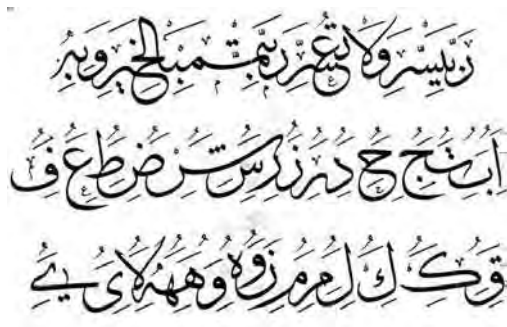 رب يسر ولا تعسر رب تمم بالخير وبه
ا ب ت ج ح د ر ز س ش ص ض ط ع ف
ق ك ك ل م م ن و ه و ه ه لا ى ي